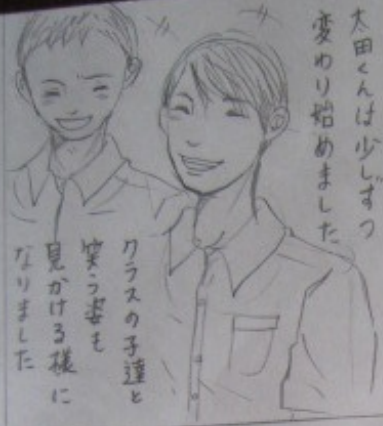 太田くんは少しずつ
変わり始めました
クラスの子達と
笑う姿も
見かける様に
なりました